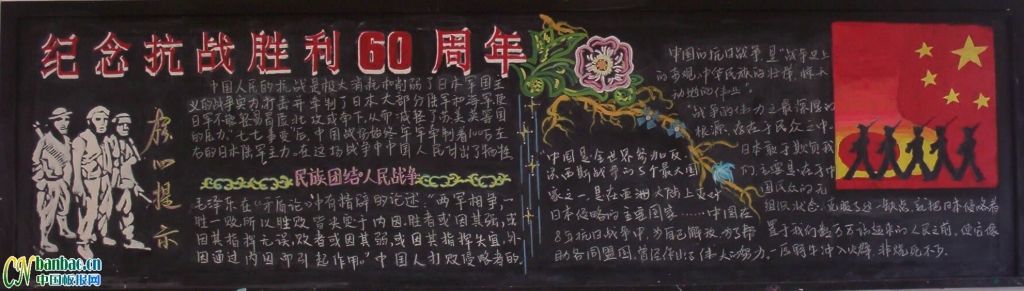 纪念抗战胜利60周年
中国人民的抗战是极大消耗和削弱了日本军国主
义的战争实力,打击并牵制了日本大部分陆军和海军使
日军不能轻易冒险北攻或南下,从而减轻了苏美英等国
的压力."七七事变"后,中国战场始终牢牢牵制着100万左
右的日本陆军主力,在这场战争中中国人民付出了牺牲
民族团结人民战争
毛泽东在"矛盾论"中有精辟的论述."两军相争,一
胜一败,所以胜败,皆决于内因,胜者或因其强,或
因其指挥无误,败者或因其弱,或因其指挥失宜,外
因通过内因而引起作用."中国人打败侵略者的,
中国是全世界参加反
法西斯战争的5个最大国
家之一,是在亚洲大陆上反对
日本侵略的主要国家……中国在
8年抗日战争中,为自己解放,为了帮
助各同盟国,曾经作了伟大的努力,
中国的抗日战争,是"战争史上
的奇观,中华民族的壮举,惊天
动地的伟业"
"战争的伟力之最深厚的
根源,存在于民众之中.
日本敢于欺负我
们,主要是在于中
国民众的无
组织状态,克服了这一缺点,就把日本侵略者
置于我们数万万站起来的人民之前,使它像
一匹野牛冲入火阵,非烧死不可.
CNbanbao.cn
中国板报网